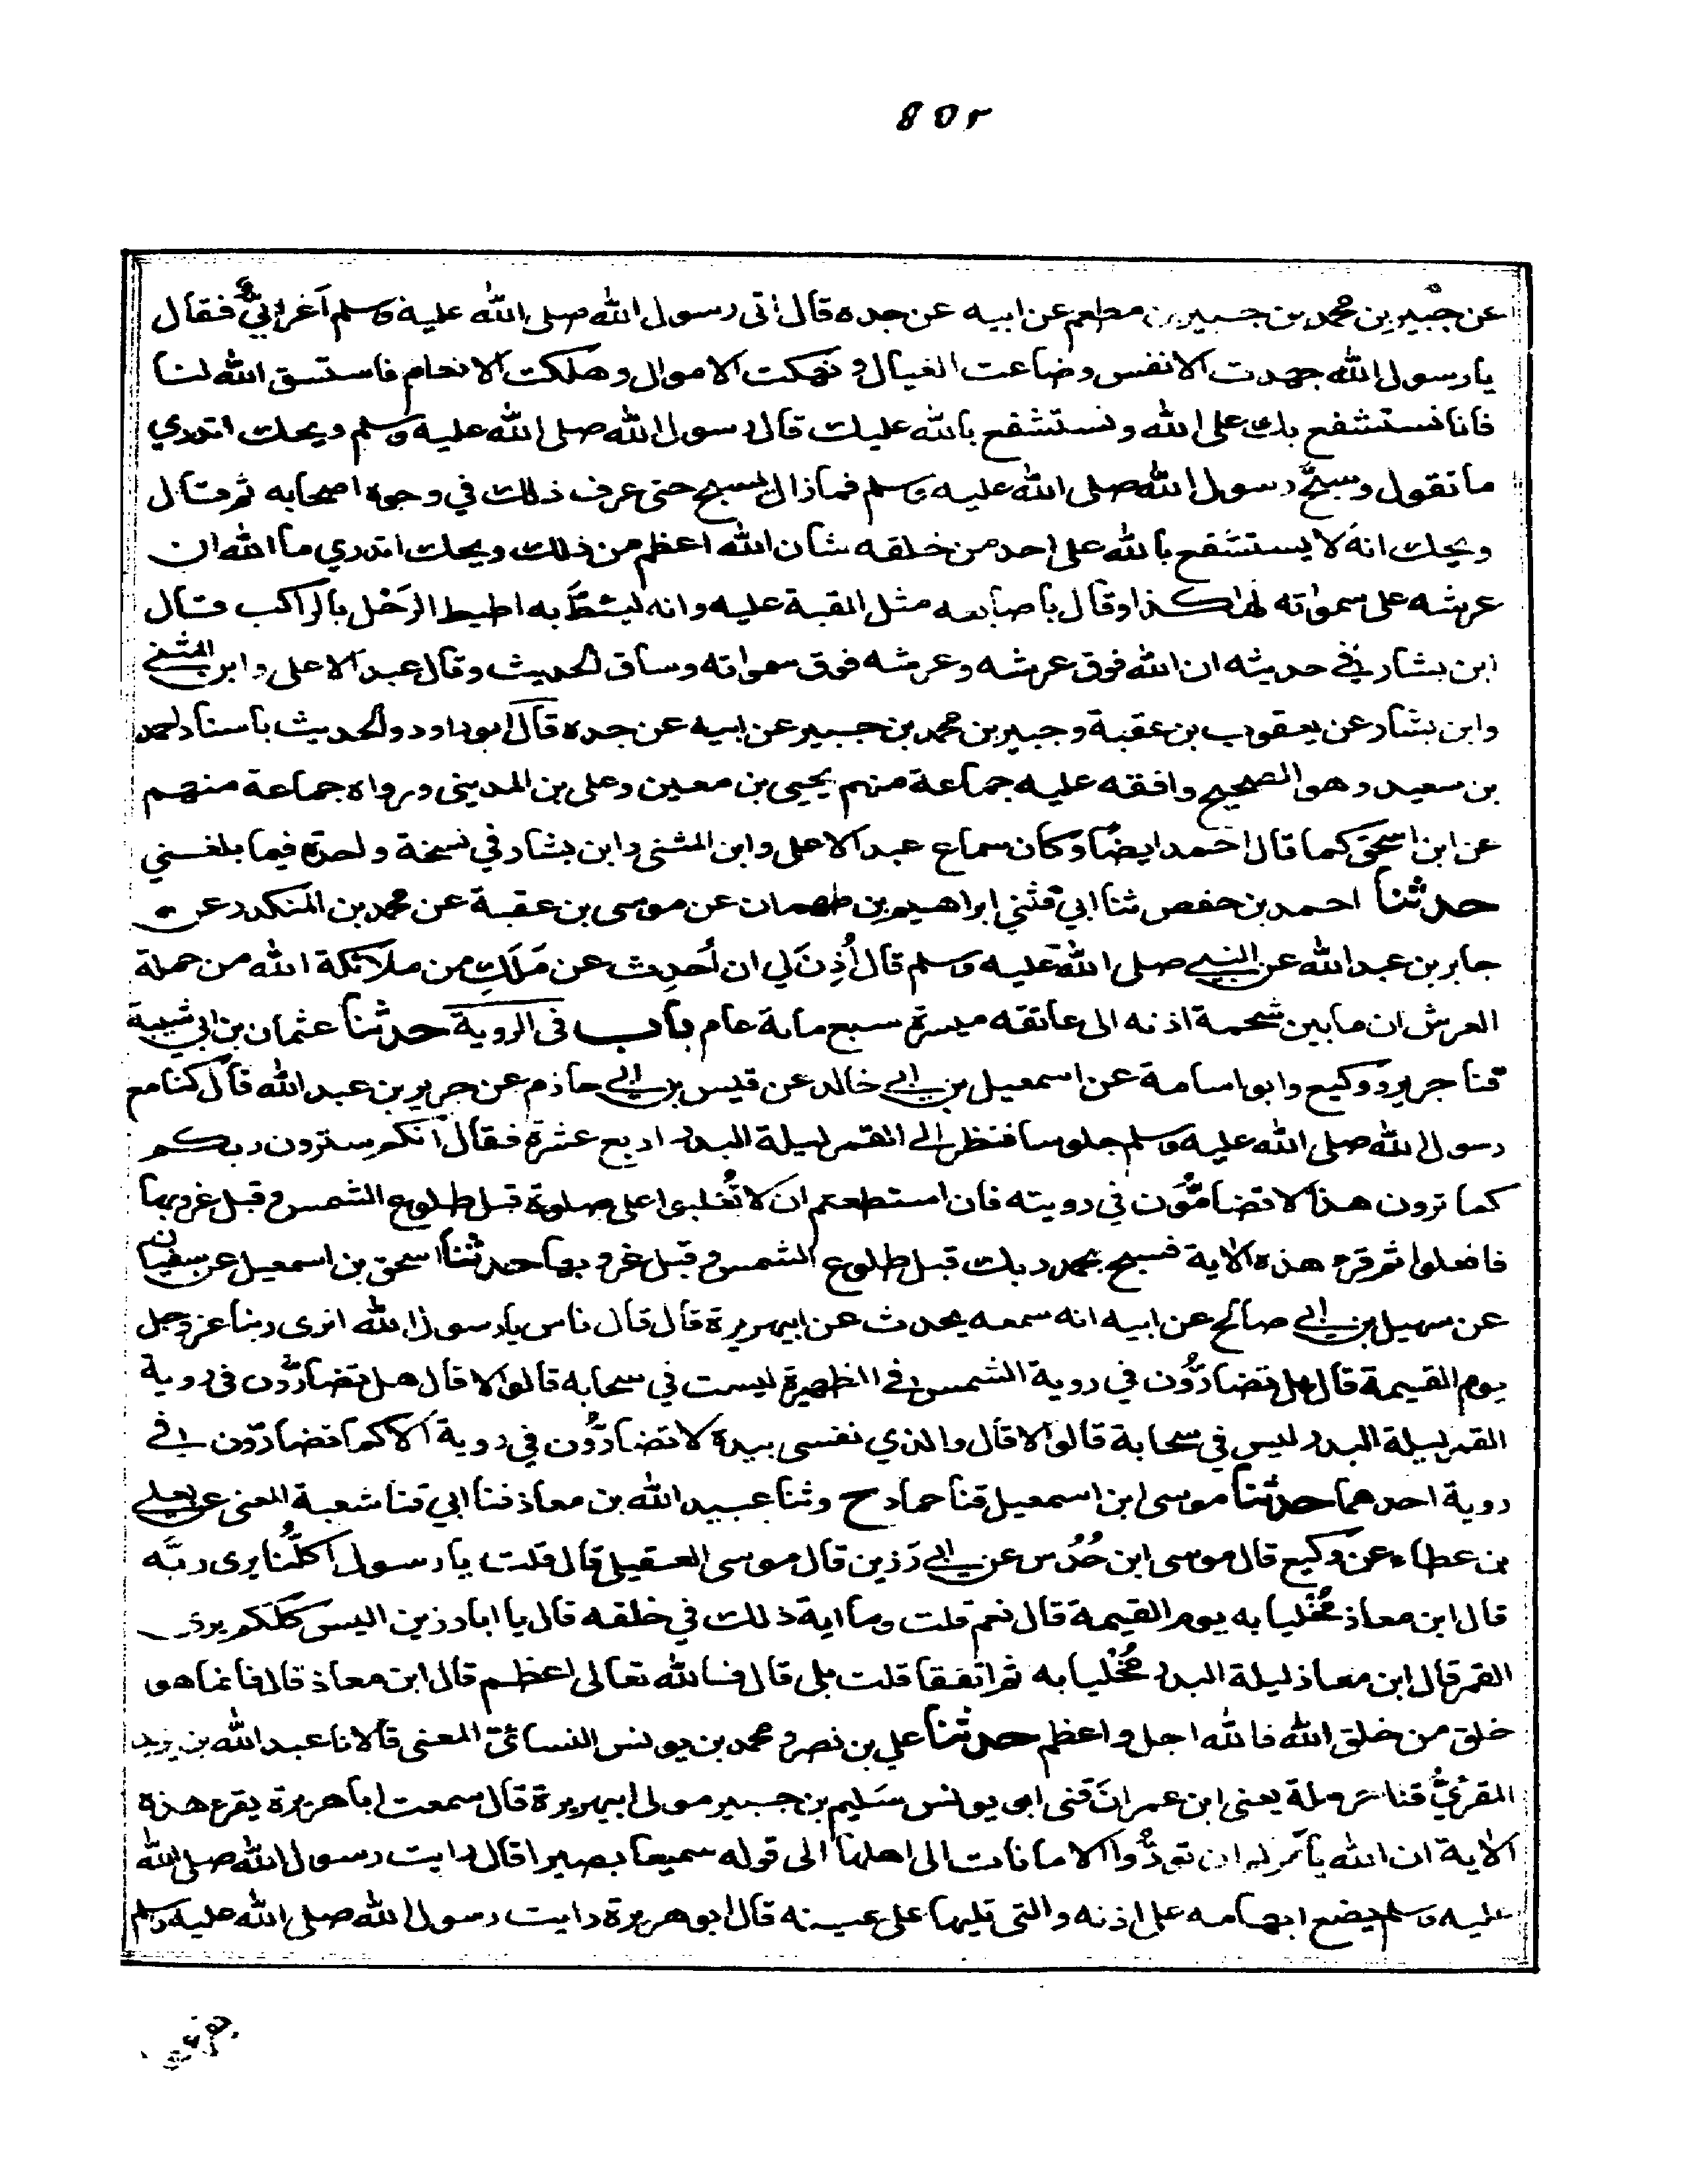 ٨٥٢
عن جبير بن محمد بن جبير بن مطعم عن ابيه عن جده قال اتى رسول الله صلى الله عليه وسلم اعرابيٌّ فقال
يا رسول الله جهدت الانفس وضاعت العيال و نهكت الاموال وهلكت الانعام فاستسق الله لنا
فانا نستشفع بك على الله ونستشفع بالله عليك قال رسول الله صلى الله عليه وسلم ويحك اتدري
ما تقول وسبّح رسول الله صلى الله عليه وسلم فما زال يسبح حتى عرف ذلك في وجوه اصحابه ثم قال
ويحك انه لا يستشفع بالله على احد من خلقه شان الله اعظم من ذلك ويحك اتدري ما الله ان
عرشه على سمواته لهكذا وقال باصابعه مثل القبة عليه وانه ليئطّ به اطيط الرَحْل بالراكب قال
ابن بشار في حديثه ان الله فوق عرشه وعرشه فوق سمواته وساق الحديث وقال عبد الاعلى وابن المثنى
وابن بشار عن يعقوب بن عقبة وجبير بن محمد بن جبير عن ابيه عن جده قال ابو داود والحديث باسناد احمد
بن سعيد وهو الصحيح وافقه عليه جماعة منهم يحيى بن معين وعلي بن المديني ورواه جماعة منهم
عن ابن اسحق كما قال احمد ايضا وكان سماع عبد الاعلى وابن المثنى وابن بشار في نسخة واحدة فيما بلغني
حدثنا احمد بن حفص ثنا ابي قثني ابراهيم بن طهمان عن موسى بن عقبة عن محمد بن المنكدر عن
جابر بن عبد الله عن النبي صلى الله عليه وسلم قال أُذِنَ لي ان أُحدِث عن مَلَكٍ من ملائكة الله من حملة
العرش ان ما بين شحمة اذنه الى عاتقه ميسرة سبع ماية عام باب في الروية حدثنا عثمان بن ابي شيبة
قنا جرير ووكيع وابو اسامة عن اسمعيل بن ابي خالد عن قيس بن ابي حازم عن جرير بن عبد الله قال كنا مع
رسول الله صلى الله عليه وسلم جلوسا فنظر الى القمر ليلة البدر اربع عشرة فقال انكم سترون ربكم
كما ترون هذا لا تضامُّون في رويته فان استطعتم ان لا تُغلبوا على صلوة قبل طلوع الشمس و قبل غروبها
فافعلوا ثم قرء هذه الاية فسبح بحمد ربك قبل طلوع الشمس و قبل غروبها حدثنا اسحق بن اسمعيل عن سفيان
عن سهيل بن ابي صالح عن ابيه انه سمعه يحدث عن ابيهريرة قال قال ناس يا رسول الله انرى ربنا عز وجل
يوم القيمة قال هل تضارُّون في روية الشمس في الظهيرة ليست في سحابه قالوا لا قال هل تضارُّون في روية
القمر ليلة البدر ليس في سحابة قالوا لا قال والذي نفسي بيده لا تضارُّون في روية الا كما تضارّون في
روية احدهما حدثنا موسى ابن اسمعيل قنا حماد ح وثنا عبيد الله بن معاذ قنا ابي قنا شعبة المعنى عن يعلى
بن عطاء عن وكيع قال موسى ابن حُدُس عن ابي رَزين قال موسى العقيلي قال قلت يا رسول اكلُّنا يرى ربَّه
قال ابن معاذ مُخْليا به يوم القيمة قال نعم قلت وما اية ذلك في خلقه قال يا ابا رزين اليس كلّكم يرى
القمر قال ابن معاذ ليلة البدر مُخْليا به ثم اتفقا قلت بلى قال فالله تعالى اعظم قال ابن معاذ قال فانما هو
خلق من خلق الله فالله اجل واعظم حدثنا علي بن نصر و محمد بن يونس النسائىّ المعنى قالا نا عبد الله بن يزيد
المقرئُ قنا حرملة يعني ابن عمران قثنى ابو يونس سَليم بن جبير مولى ابيهريرة قال سمعت ابا هريرة يقرء هذه
الاية ان الله يأمركم ان تودُّوا الامانات الى اهلها الى قوله سميعا بصيرا قال رايت رسول الله صلى الله
عليه وسلم يضع ابهامه على اذنه والتي تليها على عينه قال ابو هريرة رايت رسول الله صلى الله عليه وسلم